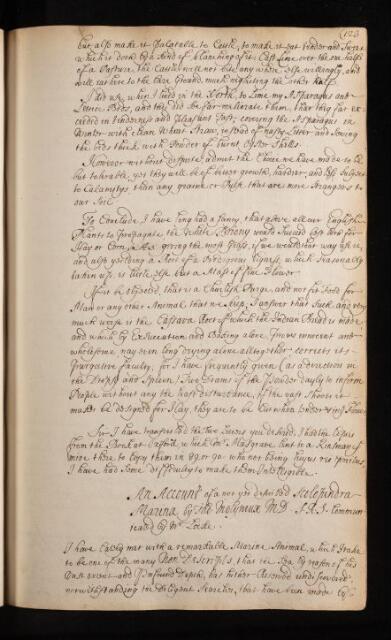 123
but also make it Palatable to Cattle, to make it eat tender and sweet
which is done by a kind of blanching of it; Cast Lime over the one halfe
of a Pasture. The Cattle will not bite any where else willingly, and
will eat bare to the bare Ground, much neglecting the other half.
I did use when I lived in the North, to Lime my Asparagus and
Lettice Beds, and they did so far meliorate them, that they far ex-
ceeded in tenderness and pleasant Tast; covering the Asparagus in
Winter with clean Wheat Straw, instead of nasty Litter and strowing
the beds thick with Powder of burnt Oyster Shells.
However without dispute I admit the Choice we have made to be
but tolerable, yet they will be of better growth, hardier, and less subject
to Calamitys, than any graine or Pulse that are more strangers to
our Soil.
To Conclude I have long had a fancy, that above all our English
Plants to propagate the white Briony would succeed best both for
Hay or Corn, as giving the most Grass, if we went that way
and also yeilding a Root of a Prodigious bigness, which seasonably
taken up, is little else but a Mass of fine Flower.
If it be objected, that is a Churlish Purge, and not fit Food for
Man or any other Animal that we keep, I answer that such and very
much worse is the Cassava Root of which the Indian Bread is made
and which by Exsiccation and Baking alone grows innocent and
wholesome, nay even long drying alone alltogether corrects its
Purgative faculty, for I have frequently given (as a devotion in
the Dropsie and Spleen) Two Drams of the Powder dayly to infirm
People without any the least disturbance, if the vast Shoots it
makes be designed for Hay, they are to be Cut when tender & very Young
Sr. I have transcribed the two Leaves you desired, I had the Copies
from the Book at Oxford, which Mr. Musgrave lent to a Kinsman of
mine there to Copy them in 89. or 90. who not being
I have had some difficulty to make them Intelligible.
An Account of a not yet described Scolopendra
Marina by Tho Molyneux M.D. S.R.S. Commun
icated by Mr. Locke.
I have lately met with a remarkable Marine Animal, which I take
to be one of the many Non Descripts, that the Sea by reason of his
Vast extent and Profound Depth, has hitherto Reserved undiscovered,
notwithstanding the diligent Searches, that have been made by